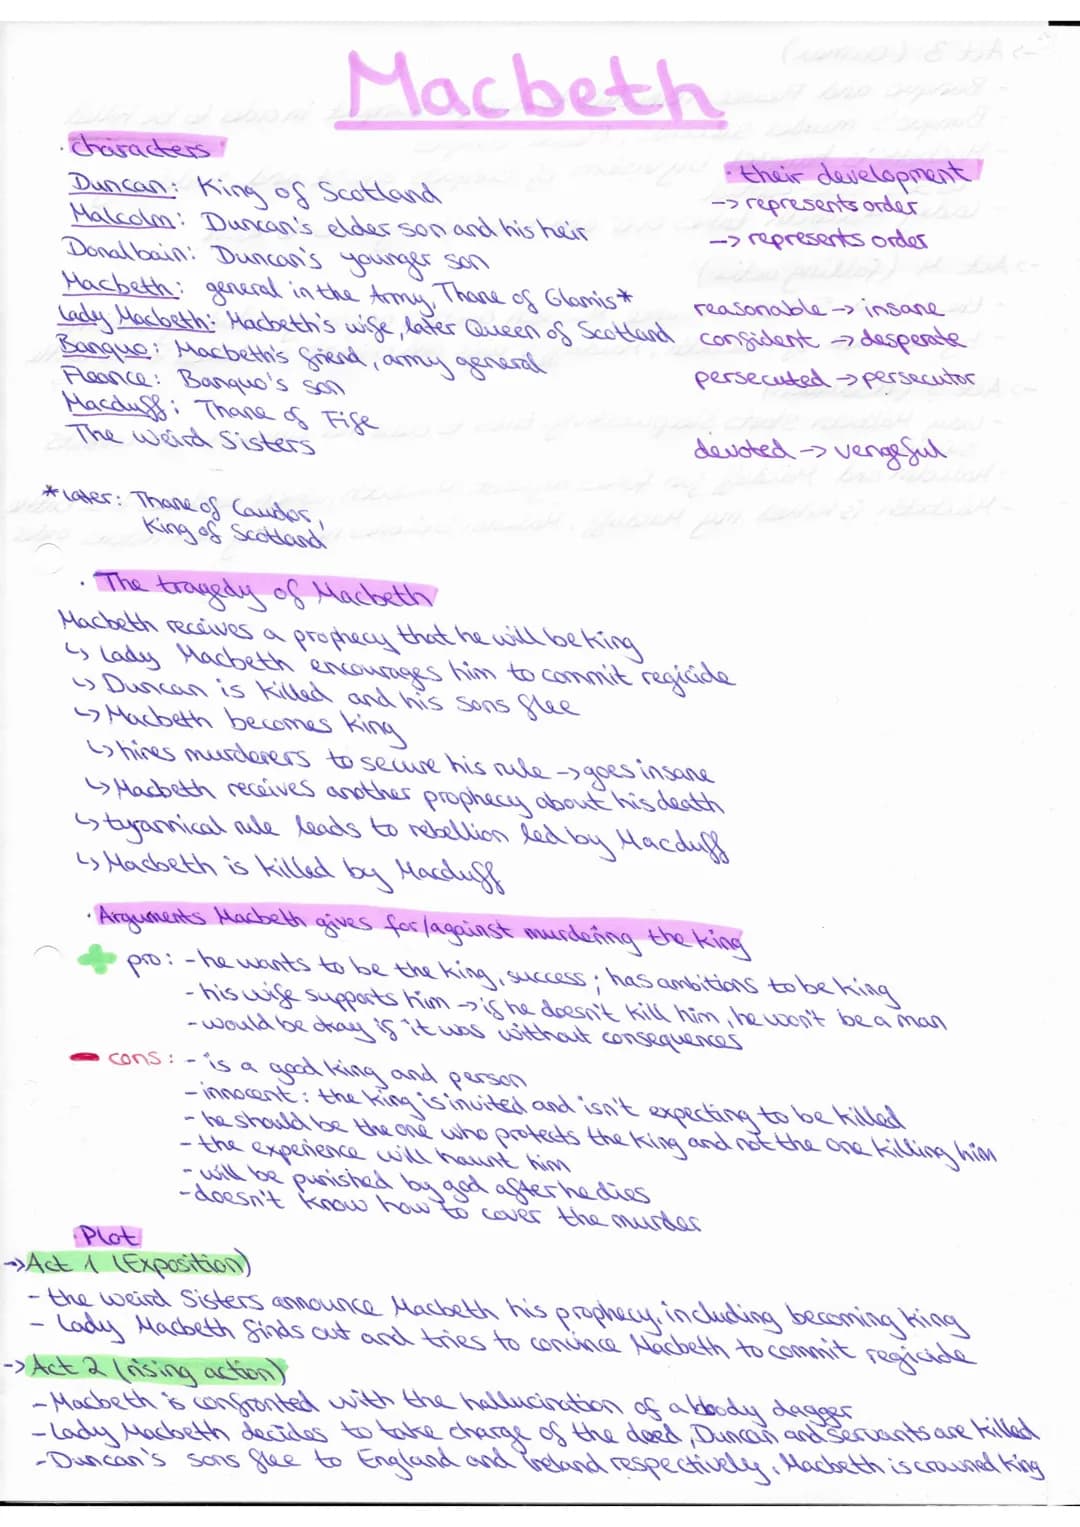 Macbeth
· characters
Duncan: King of Scotland
Malcolm: Duncan's elder son and his heir
Donalbain: Duncan's younger son
Macbeth: general in the Army, Thane of Glamis*
Lady Macbeth: Macbeth's wife, later Queen of Scotland
Banquo: Macbeth's friend, army general
Fleance: Banquo's son
Macduff: Thane of Fife
The weird Sisters
* later: Thane of Cawdor,
King of Scotland
· their development
-> represents order
-> represents order
reasonable -> insane
confident -> desperate
persecuted -> persecutor
devoted -> vengeful
· The tragedy of Macbeth
Macbeth receives a prophecy that he will be king
↳ Lady Macbeth encourages him to commit regicide
↳ Duncan is killed and his sons flee
↳ Macbeth becomes king
↳ hires murderers to secure his rule -> goes insane
↳ Macbeth receives another prophecy about his death
↳ tyrannical rule leads to rebellion led by Macduff
↳ Macbeth is killed by Macduff
· Arguments Macbeth gives for/against murdering the king
+ pro: - he wants to be the king, success; has ambitions to be king
- his wife supports him -> if he doesn't kill him, he won't be a man
- would be okay if it was without consequences
- cons: - is a good king and person
- innocent: the king is invited and isn't expecting to be killed
- he should be the one who protects the king and not the one killing him
- the experience will haunt him
- will be punished by god after he dies
- doesn't know how to cover the murder
· Plot
-> Act 1 (Exposition)
- the weird Sisters announce Macbeth his prophecy, including becoming king
- Lady Macbeth finds out and tries to convince Macbeth to commit regicide
-> Act 2 (rising action)
- Macbeth is confronted with the hallucination of a bloody dagger
- Lady Macbeth decides to take charge of the deed, Duncan and servants are killed
- Duncan's sons flee to England and Ireland respectively, Macbeth is crowned king